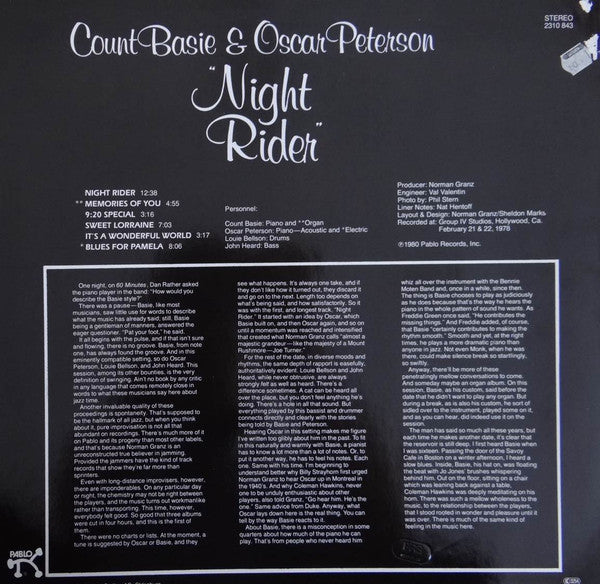 STEREO
2310 843
Count Basie & Oscar Peterson
"Night
Rider"
NIGHT RIDER 12:38
** MEMORIES OF YOU 4:55
9:20 SPECIAL 3:16
SWEET LORRAINE 7:03
IT'S A WONDERFUL WORLD 3:17
* BLUES FOR PAMELA 8:06
Personnel:
Count Basie: Piano and **Organ
Oscar Peterson: Piano—Acoustic and *Electric
Louie Bellson: Drums
John Heard: Bass
Producer: Norman Granz
Engineer: Val Valentin
Photo by: Phil Stern
Liner Notes: Nat Hentoff
Layout & Design: Norman Granz/Sheldon Marks
Recorded at: Group IV Studios, Hollywood, Ca.
February 21 & 22, 1978
℗1980 Pablo Records, Inc.
One night, on 60 Minutes, Dan Rather asked
the piano player in the band: "How would you
describe the Basie style?"
There was a pause—Basie, like most
musicians, saw little use for words to describe
what the music has already said, still, Basie
being a gentleman of manners, answered the
eager questioner. "Pat your foot," he said.
It all begins with the pulse, and if that isn't sure
and flowing, there is no groove. Basie, from note
one, has always found the groove. And in this
eminently compatible setting, so do Oscar
Peterson, Louie Bellson, and John Heard. This
session, among its other bounties, is the very
definition of swinging. Ain't no book by any critic
in any language that comes remotely close in
words to what these musicians say here about
jazz time.
Another invaluable quality of these
proceedings is spontaneity. That's supposed to
be the hallmark of all jazz, but when you think
about it, pure improvisation is not all that
abundant on recordings. There's much more of it
on Pablo and its progeny than most other labels,
and that's because Norman Granz is an
unreconstructed true believer in jamming.
Provided the jammers have the kind of track
records that show they're far more than
sprinters.
Even with long-distance improvisers, however,
there are imponderables. On any particular day
or night, the chemistry may not be right between
the players, and the music turns out workmanlike
rather than transporting. This time, however,
everybody felt good. So good that three albums
were cut in four hours, and this is the first of
them.
There were no charts or lists. At the moment, a
tune is suggested by Oscar or Basie, and they
see what happens. It's always one take, and if
they don't like how it turned out, they discard it
and go on to the next. Length too depends on
what's being said, and how satisfactorily. So it
was with the first, and longest track. "Night
Rider." It started with an idea by Oscar, which
Basie built on, and then Oscar again, and so on
until a momentum was reached and intensified
that created what Norman Granz calls "almost a
majestic grandeur—like the majesty of a Mount
Rushmore—Joe Turner."
For the rest of the date, in diverse moods and
rhythms, the same depth of rapport is easefully,
authoritatively evident. Louie Bellson and John
Heard, while never obtrusive, are always
strongly felt as well as heard. There's a
difference sometimes. A cat can be heard all
over the place, but you don't feel anything he's
doing. There's a hole in all that sound. But
everything played by this bassist and drummer
connects directly and clearly with the stories
being told by Basie and Peterson.
Hearing Oscar in this setting makes me figure
I've written too glibly about him in the past. To fit
in this naturally and warmly with Basie, a pianist
has to know a lot more than a lot of notes. Or, to
put it another way, he has to feel his notes. Each
one. Same with his time. I'm beginning to
understand better why Billy Strayhorn first urged
Norman Granz to hear Oscar up in Montreal in
the 1940's. And why Coleman Hawkins, never
one to be unduly enthusiastic about other
players, also told Granz, "Go hear him. He's the
one." Same advice from Duke. Anyway, what
Oscar lays down here is the real thing. You can
tell by the way Basie reacts to it.
About Basie, there is a misconception in some
quarters about how much of the piano he can
play. That's from people who never heard him
whiz all over the instrument with the Bennie
Moten Band and, once in a while, since then.
The thing is Basie chooses to play as judiciously
as he does because that's the way he hears the
piano in the whole pattern of sound he wants. As
Freddie Green once said, "He contributes the
missing things." And Freddie added, of course,
that Basie "certainly contributes to making the
rhythm smooth." Smooth and yet, at the right
times, he plays a more dramatic piano than
anyone in jazz. Not even Monk, when he was
there, could make silence break so startlingly,
so swiftly.
Anyway, there'll be more of these
penetratingly mellow conversations to come.
And someday maybe an organ album. On this
session, Basie, as his custom, said before the
date that he didn't want to play any organ. But
during a break, as is also his custom, he sort of
sidled over to the instrument, played some on it,
and as you can hear, did indeed use it on the
session.
The man has said so much all these years, but
each time he makes another date, it's clear that
the reservoir is still deep. I first heard Basie when
I was sixteen. Passing the door of the Savoy
Cafe in Boston on a winter afternoon, I heard a
slow blues. Inside, Basie, his hat on, was floating
the beat with Jo Jones' brushes whispering
behind him. Out on the floor, sitting on a chair
which was leaning back against a table,
Coleman Hawkins was deeply meditating on his
horn. There was such a mellow wholeness to the
music, to the relationship between the players,
that I stood rooted in wonder and pleasure until it
was over. There is much of the same kind of
feeling in the music here.
PABLO